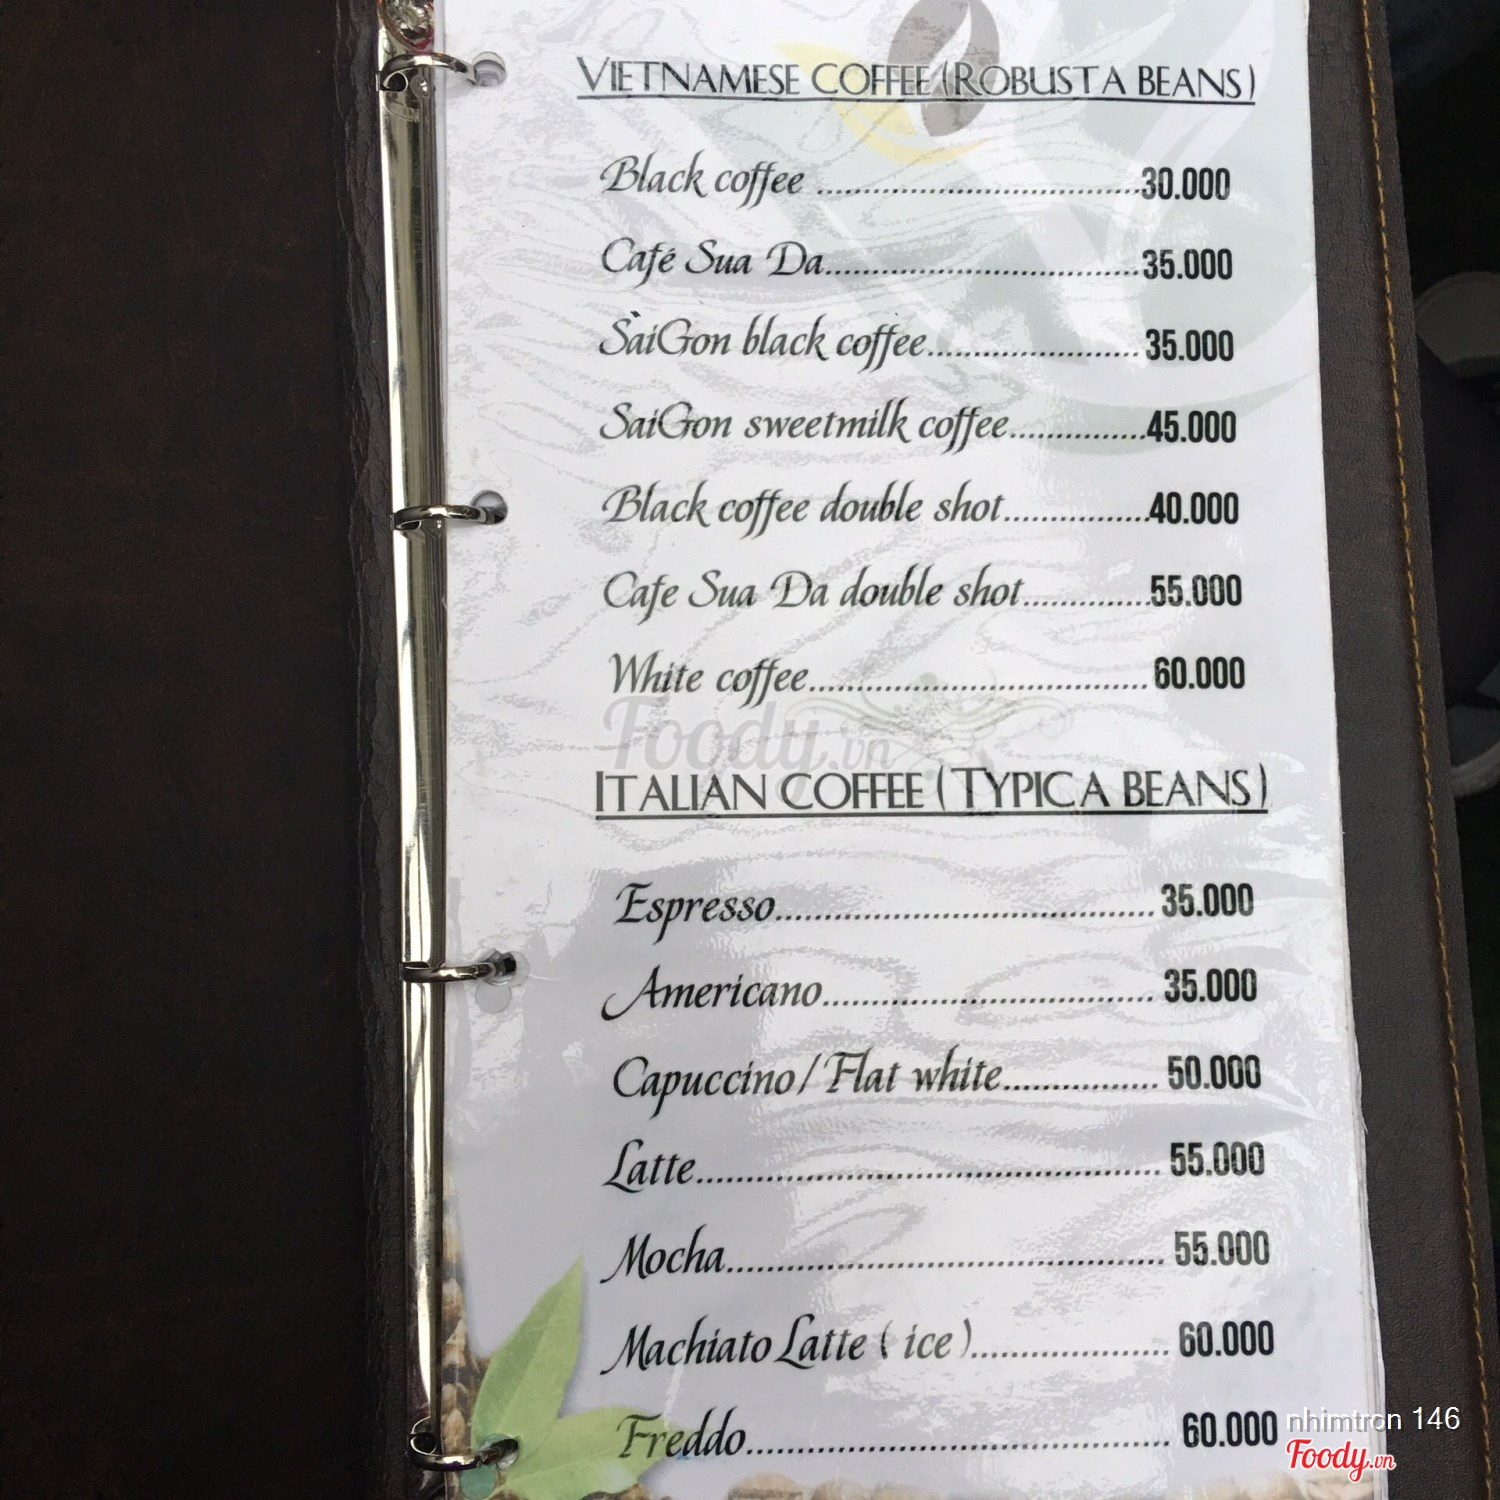 VIETNAMESE COFFEE (ROBUSTA BEANS)
Black coffee ........................................30.000
Café Sua Da........................................35.000
SaiGon black coffee..........................35.000
SaiGon sweetmilk coffee.................45.000
Black coffee double shot..................40.000
Cafe Sua Da double shot................55.000
White coffee..........................................60.000
Foody.vn
ITALIAN COFFEE (TYPICA BEANS)
Espresso................................................35.000
Americano..........................................35.000
Capuccino/Flat white...................50.000
Latte..........................................................55.000
Mocha......................................................55.000
Machiato Latte ( ice ).........................60.000
Freddo.....................................................60.000
nhimtron 146
Foody.vn